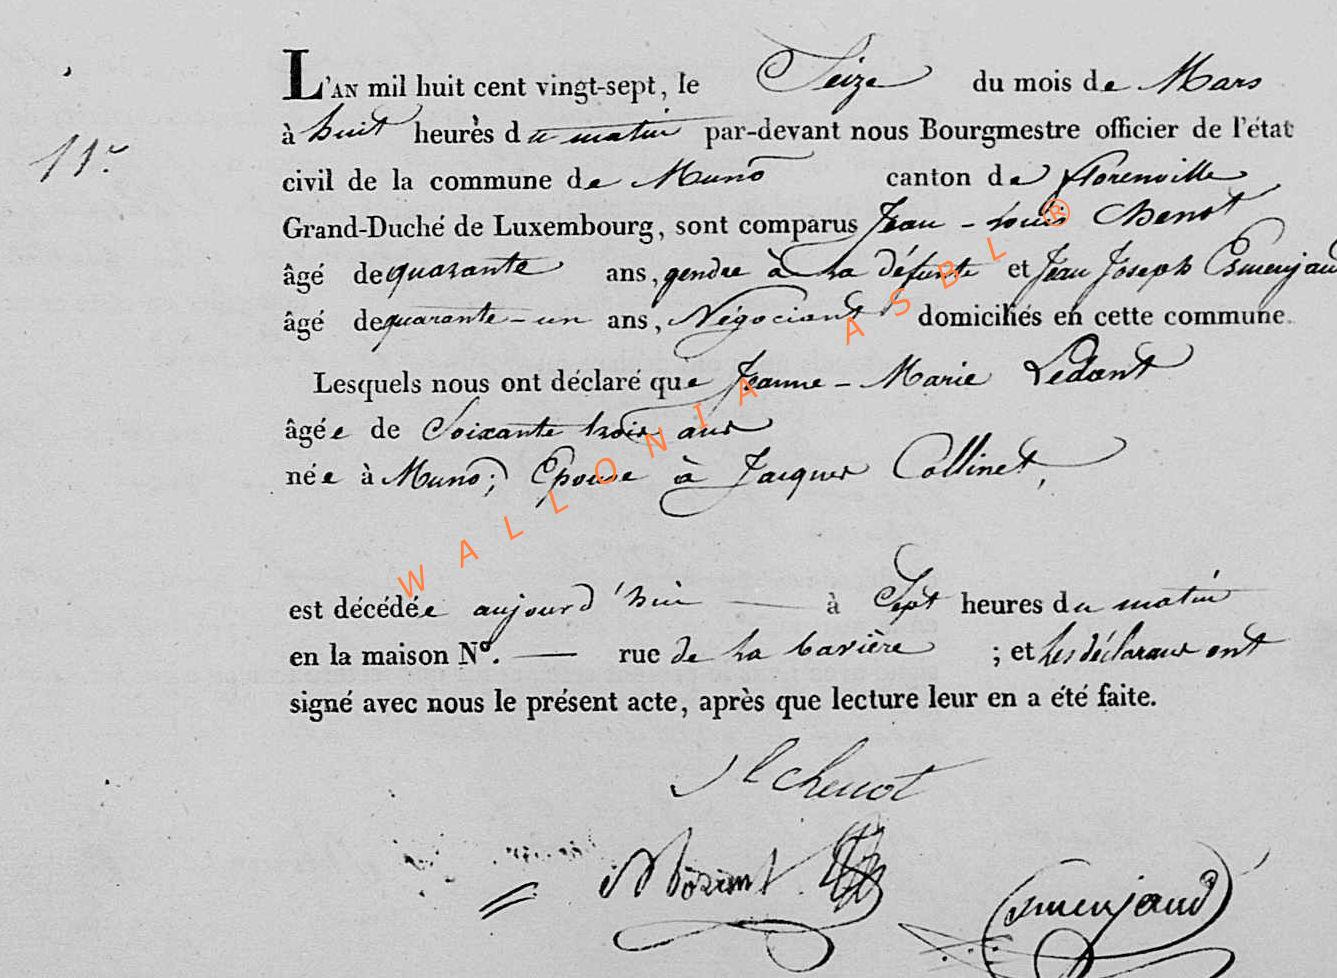 L'AN mil huit cent vingt-sept, le Seize du mois de Mars
11e
à huit heures du matin par-devant nous Bourgmestre officier de l'état
civil de la commune de Muno canton de florenville
Grand-Duché de Luxembourg, sont comparus Jean-Louis Chenot
âgé de quarante ans, gendre à La défunte et Jean Joseph Esmenjaud
âgé de quarante-un ans, Négociant domiciliés en cette commune.
Lesquels nous ont déclaré que Jeanne-Marie Ledant
âgée de Soixante trois ans
née à Muno; Epouse à Jacques Collinet,
est décédée aujourd'hui — à Sept heures du matin
en la maison No. — rue de La bavière ; et Les déclarans ont
signé avec nous le présent acte, après que lecture leur en a été faite.
Jl chenot
Esmenjaud
WALLONIA ASBL ®